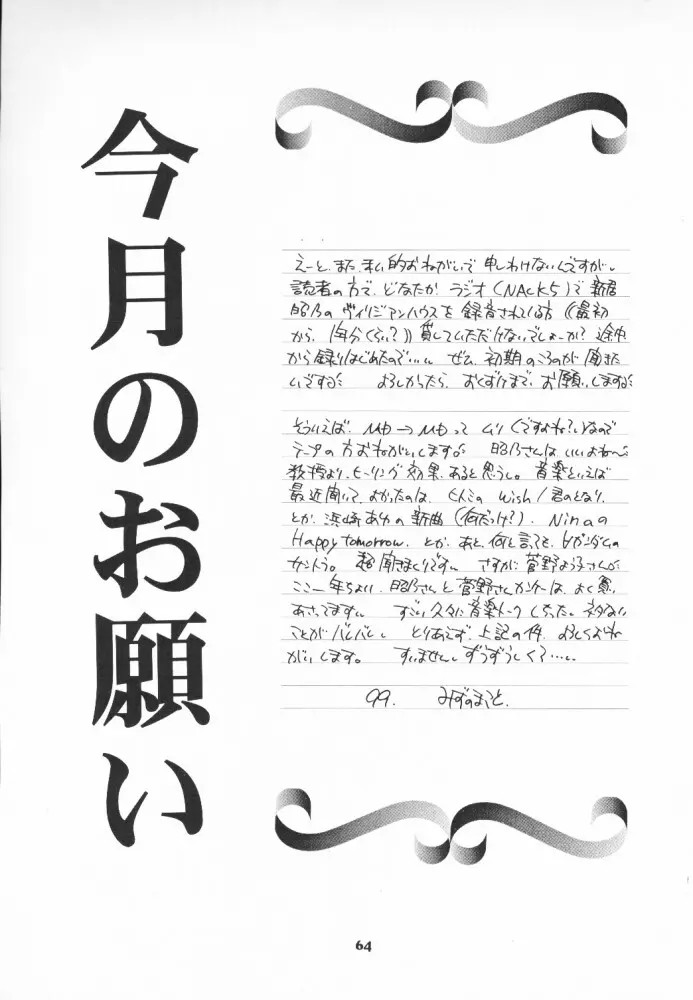 今月のお願い
えーと、また、私的おねがいで申しわけないんですが。
読者の方で、どなたか ラジオ(NACK5)で 新居
昭乃の ヴィリジアンハウスを 録音されてる方《最初
から、1年分くらい?》貸していただけないでしょーか? 途中
から録りはじめたので…。 ぜひ、初期のころのが 聞きた
いです。 よろしかったら、おくづけまで、お願いします。
そういえば、MD→MDって ムリ(ですよね?)なので
テープの方おねがいします。 昭乃さんは いいよね〜。
教授より、ヒーリング 効果、あると思うし。音楽といえば
最近聞いて、よかったのは、 Wish/君のとなり、
とか、浜崎あゆの 新曲(何だっけ?)、Ninaの
Happy tomorrow、とか、あと、何と言っても、∀ガンダムの
サントラ。 超 聞きまくりです。 さすが 菅野よう子さん。
ここ一年ちょい、昭乃さんと 菅野さん は、よく買い
あさってます。 すごい久々に 音楽トーク しちった。ネタない
ことが バレバレ。 とりあえず、上記の件、よろしくおね
がいします。 すいません。ずうずうしくて…。
99. みずのまこと.
64